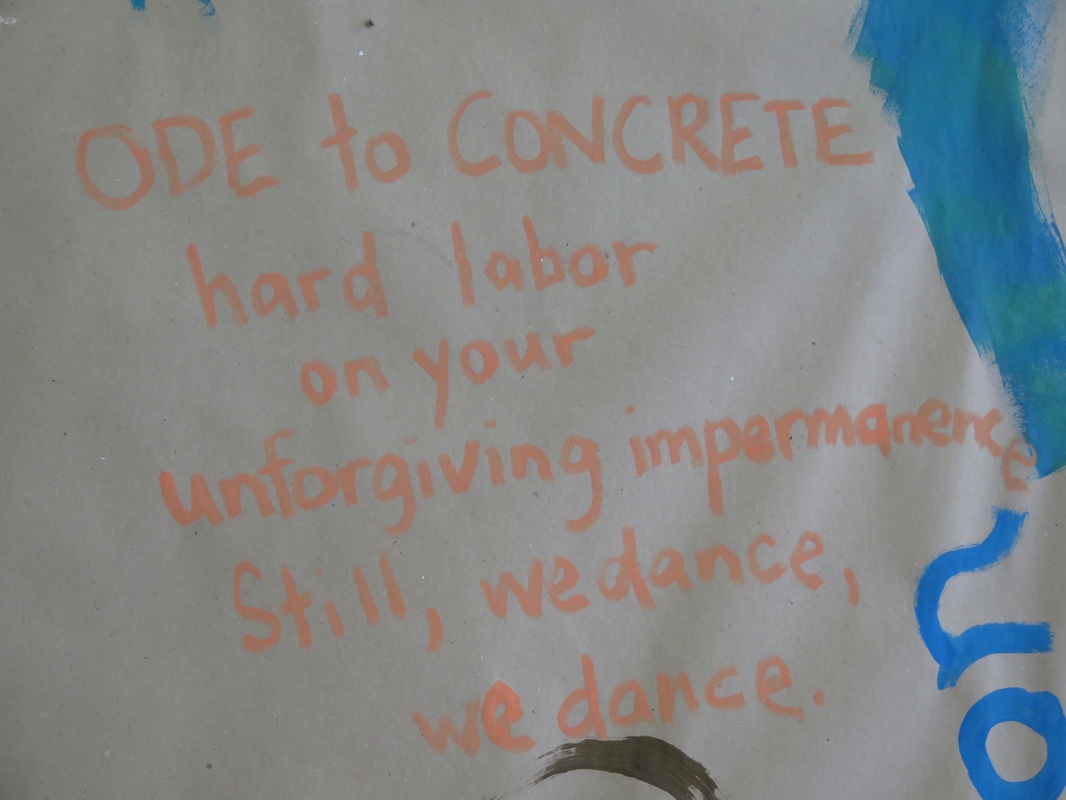 ODE to CONCRETE
hard labor
on your
unforgiving impermanence
Still, we dance,
we dance.